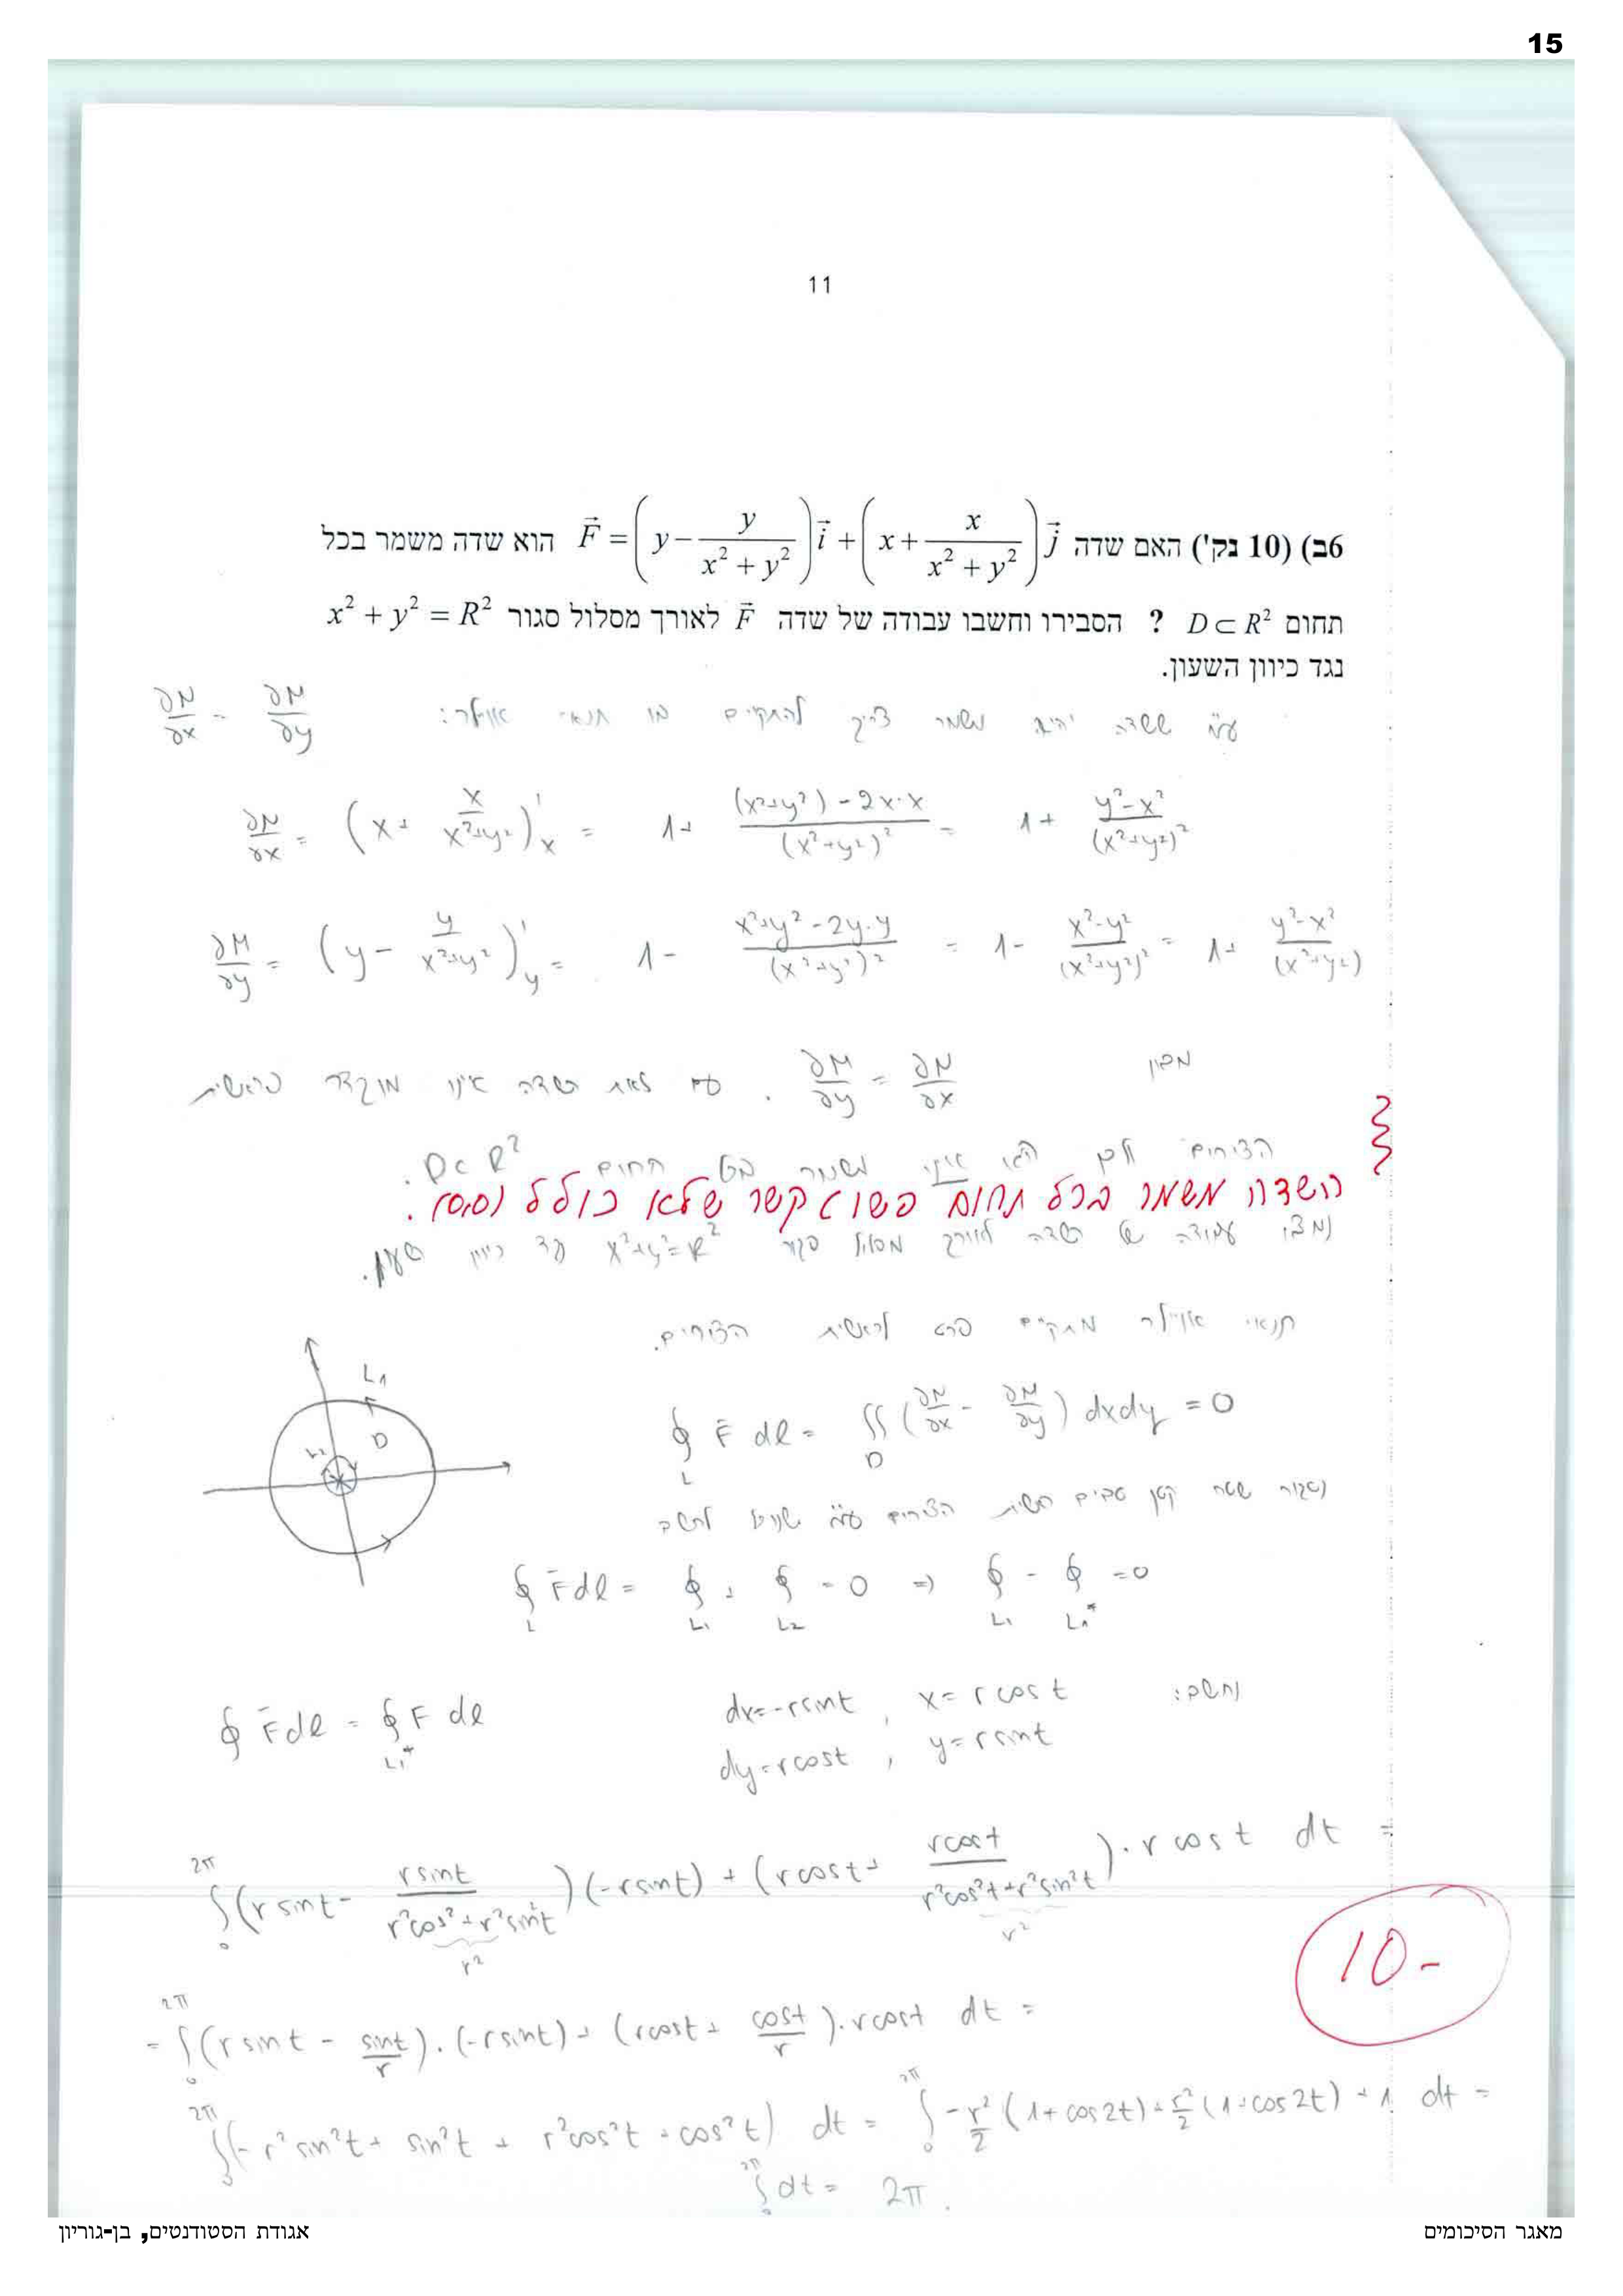 15
11
6ב) (10 נק') האם שדה $\vec{F} = \left(y - \frac{y}{x^2+y^2}\right)\vec{i} + \left(x + \frac{x}{x^2+y^2}\right)\vec{j}$ הוא שדה משמר בכל
תחום $D \subset R^2$ ? הסבירו וחשבו עבודה של שדה $\vec{F}$ לאורך מסלול סגור $x^2 + y^2 = R^2$
נגד כיוון השעון.
ע"מ ששדה יהיה משמר צריך להתקיים בו תנאי אוילר: $\frac{\partial N}{\partial x} = \frac{\partial M}{\partial y}$
$\frac{\partial N}{\partial x} = \left(x + \frac{x}{x^2+y^2}\right)'_x = 1 + \frac{(x^2+y^2) - 2x \cdot x}{(x^2+y^2)^2} = 1 + \frac{y^2-x^2}{(x^2+y^2)^2}$
$\frac{\partial M}{\partial y} = \left(y - \frac{y}{x^2+y^2}\right)'_y = 1 - \frac{x^2+y^2-2y \cdot y}{(x^2+y^2)^2} = 1 - \frac{x^2-y^2}{(x^2+y^2)^2} = 1 + \frac{y^2-x^2}{(x^2+y^2)}$
מכיון $\frac{\partial M}{\partial y} = \frac{\partial N}{\partial x}$ . עם זאת השדה אינו מוגדר בראשית
הצירים ולכן הוא אינו משמר בכל תחום $D \subset R^2$ .
השדה משמר בכל תחום פשוט קשר שלא כולל (0,0) .
נמצא עבודה של השדה לאורך מסלול סגור $x^2+y^2=R^2$ נגד כיוון השעון.
תנאי אוילר מתקיים פרט לראשית הצירים.
$L_1$
D
$L_2$
$\oint_L \bar{F} dl = \iint_D \left(\frac{\partial N}{\partial x} - \frac{\partial M}{\partial y}\right) dxdy = 0$
נסגור שטח קטן סביב ראשית הצירים ע"מ שנוכל לחשב
$\oint_L \bar{F} dl = \oint_{L_1} + \oint_{L_2} = 0 \Rightarrow \oint_{L_1} - \oint_{L_1^*} = 0$
נחשב: $x = r\cos t$ , $dx = -r\sin t$
$y = r\sin t$ , $dy = r\cos t$
$\oint \bar{F} dl = \oint_{L_1^*} F dl$
$\int_0^{2\pi} \left(r\sin t - \frac{r\sin t}{\underbrace{r^2\cos^2 + r^2\sin^2 t}_{r^2}}\right)(-r\sin t) + \left(r\cos t + \frac{r\cos t}{\underbrace{r^2\cos^2 t + r^2\sin^2 t}_{r^2}}\right) \cdot r\cos t \; dt =$
10-
$= \int_0^{2\pi} \left(r\sin t - \frac{\sin t}{r}\right) \cdot (-r\sin t) + \left(r\cos t + \frac{\cos t}{r}\right) \cdot r\cos t \; dt =$
$\int_0^{2\pi} (-r^2\sin^2 t + \sin^2 t + r^2\cos^2 t + \cos^2 t) \; dt = \int_0^{2\pi} -\frac{r^2}{2}(1+\cos 2t) + \frac{r^2}{2}(1+\cos 2t) + 1 \; dt =$
$\int_0^{2\pi} dt = 2\pi .$
מאגר הסיכומים
אגודת הסטודנטים, בן-גוריון